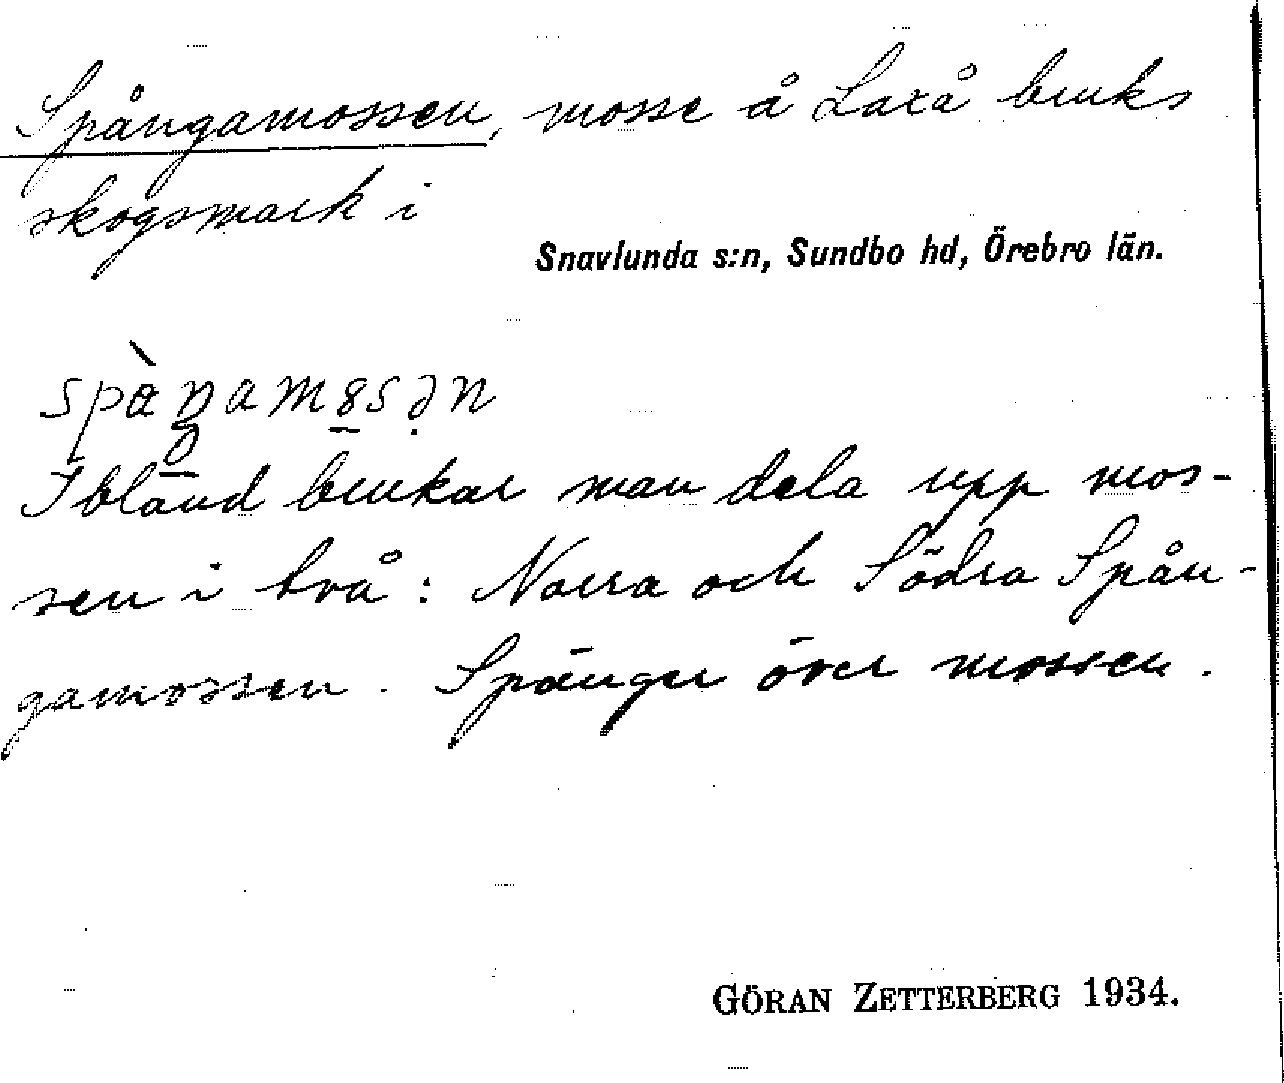 Spångamossen, mosse å Laxå bruks
skogsmark i
Snavlunda s:n, Sundbo hd, Örebro län.
Ibland brukar man dela upp mos-
sen i två: Norra och Södra Spån-
gamossen. Spänger över mossen.
GÖRAN ZETTERBERG 1934.